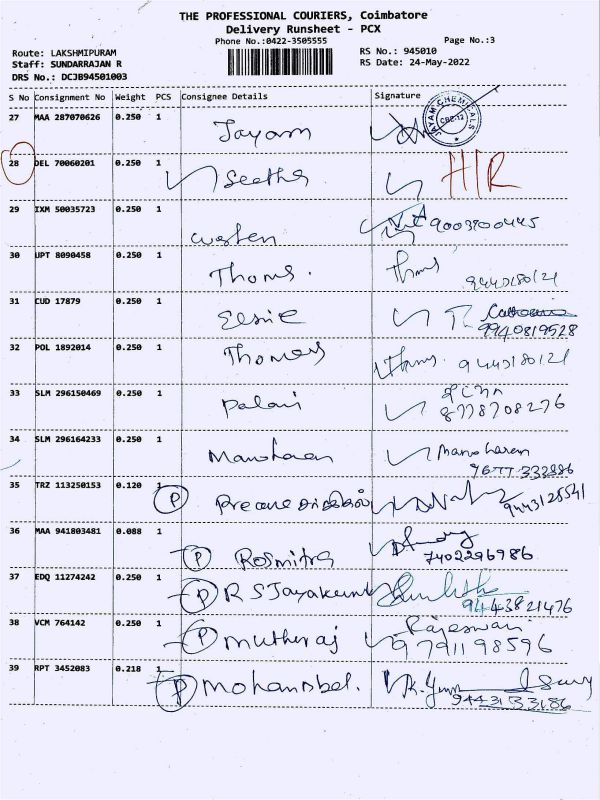 THE PROFESSIONAL COURIERS, Coimbatore
Delivery Runsheet - PCX
Phone No.:0422-3505555
Page No.:3
Route: LAKSHMIPURAM
RS No.: 945010
Staff: SUNDARRAJAN R
RS Date: 24-May-2022
DRS No.: DCJB94501003
S No Consignment No Weight PCS Consignee Details Signature
27 MAA 287070626 0.250 1 Jayam JAYAM CHEMICALS CBE-12
28 DEL 70060201 0.250 1 Seetha H/R
29 IXM 50035723 0.250 1
30 UPT 8090458 0.250 1 Thoms. 9443180121
31 CUD 17879 0.250 1 Elsie 9940819528
32 POL 1892014 0.250 1 Thomas 9443180121
33 SLM 296150469 0.250 1 Palani 8778708276
34 SLM 296164233 0.250 1 Manoharan Manoharan
35 TRZ 113250153 0.120 1 P 9443128541
36 MAA 941803481 0.088 1 P Rosmitra 7402296986
37 EDQ 11274242 0.250 1 P R S Jayakumar 9443821476
38 VCM 764142 0.250 1 P muthuraj Rajeswari 9791198596
39 RPT 3452083 0.218 1 P